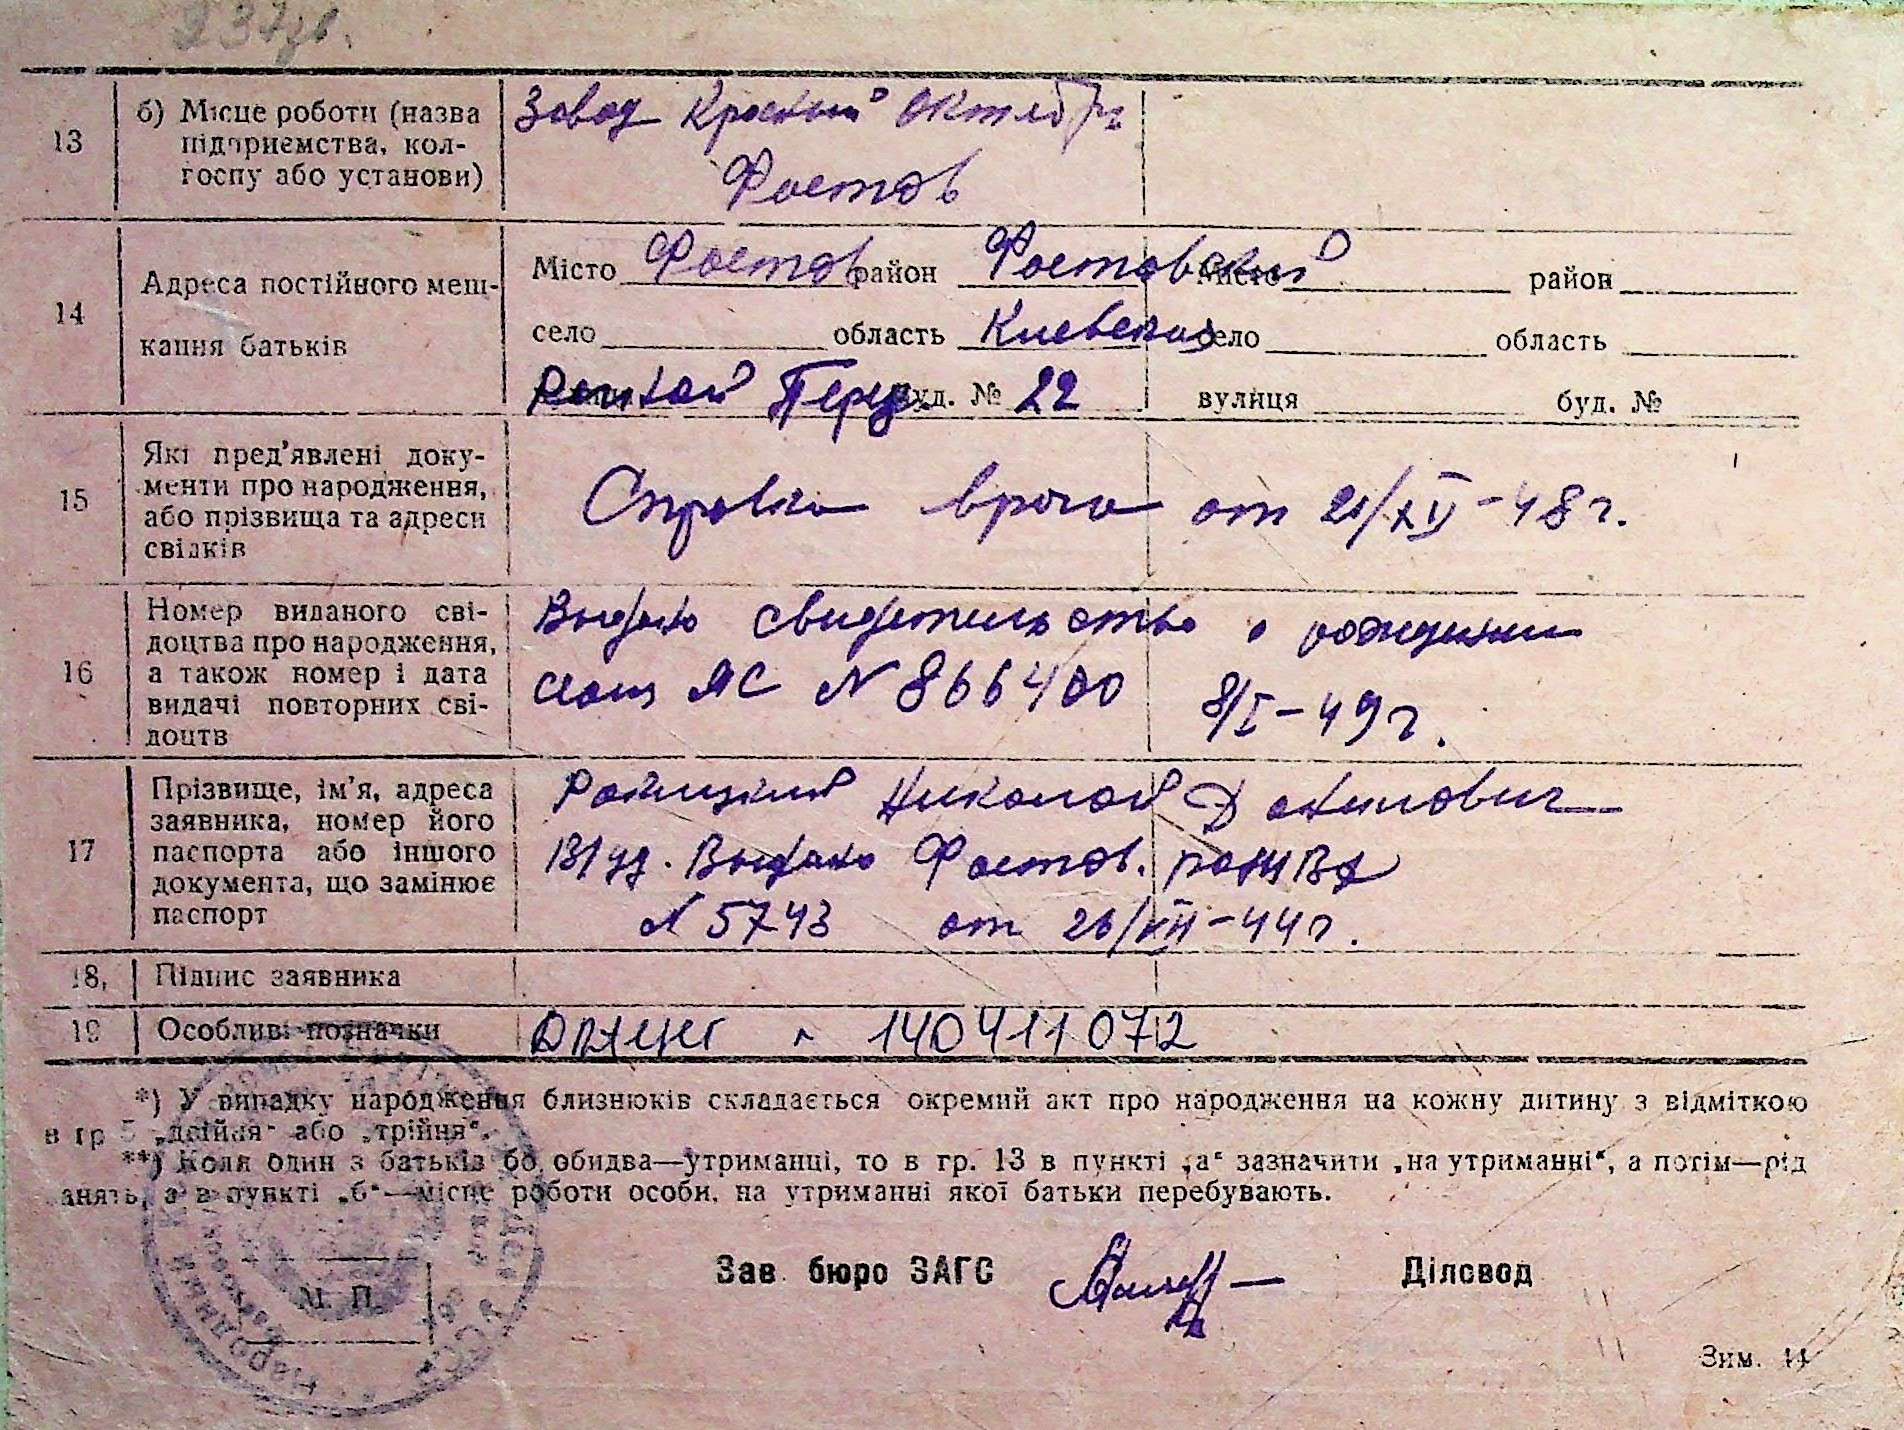 13 б) Місце роботи (назва підприємства, колгоспу або установи)
Завод Красный Октябрь
Фастов
14 Адреса постійного мешкання батьків
Місто Фастов район Фастовский Місто район
село область Киевская село область
Перез буд. № 22 вулиця буд. №
15 Які пред'явлені документи про народження, або прізвища та адреси свідків
Справка врача от 21/XII-48 г.
16 Номер виданого свідоцтва про народження, а також номер і дата видачі повторних свідоцтв
Выдано свидетельство о рождении
ЯС N 866400 8/I-49 г.
17 Прізвище, ім'я, адреса заявника, номер його паспорта або іншого документа, що замінює паспорт
Николай
Выдано Фастов. РОНКВД
N 5743 от 26/XII-44 г.
18, Підпис заявника
19 Особливі позначки
140411072
*) У випадку народження близнюків складається окремий акт про народження на кожну дитину з відміткою
в гр 5 „двійня" або „трійня".
**) Коли один з батьків бо обидва—утриманці, то в гр. 13 в пункті „а" зазначити „на утриманні", а потім—рід
анять, а в пункті „б"—місце роботи особи, на утриманні якої батьки перебувають.
М. П.
Зав. бюро ЗАГС Діловод
Зим. 14